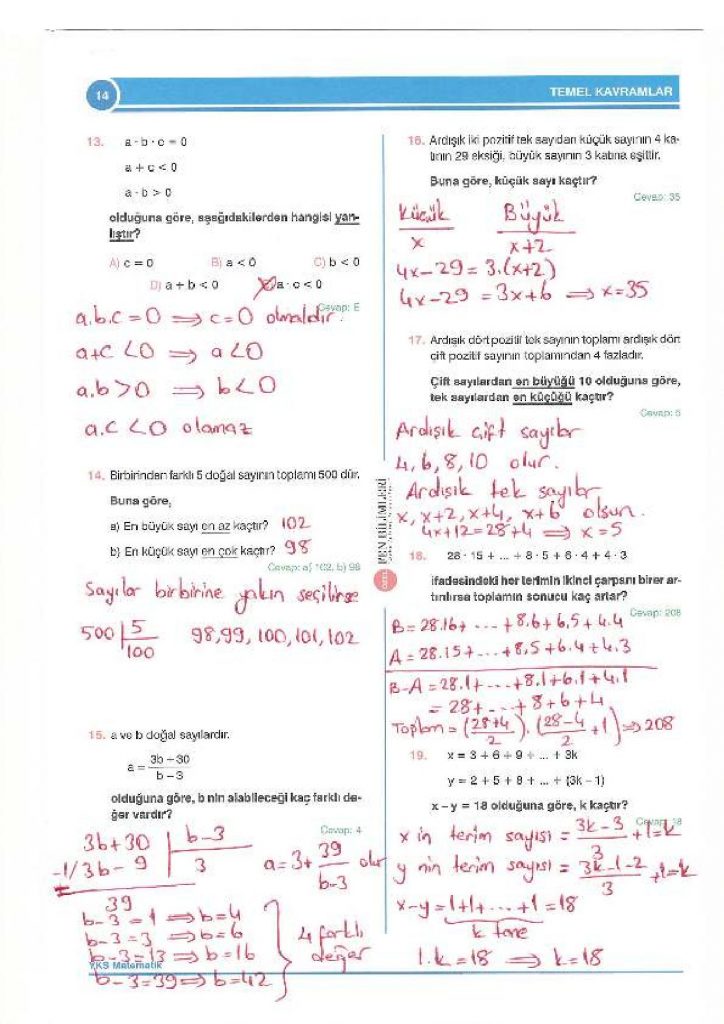 14
TEMEL KAVRAMLAR
13. a · b · c = 0
a + c < 0
a · b > 0
olduğuna göre, aşağıdakilerden hangisi yan-
lıştır?
A) c = 0 B) a < 0 C) b < 0
D) a + b < 0 E) a · c < 0
Cevap: E
a.b.c = 0 ⟹ c = 0 olmalıdır.
a+c < 0 ⟹ a < 0
a.b > 0 ⟹ b < 0
a.c < 0 olamaz
14. Birbirinden farklı 5 doğal sayının toplamı 500 dür.
Buna göre,
a) En büyük sayı en az kaçtır? 102
b) En küçük sayı en çok kaçtır? 98
Cevap: a) 102, b) 98
Sayılar birbirine yakın seçilirse
500 | 5
100
98, 99, 100, 101, 102
15. a ve b doğal sayılardır.
a = (3b + 30) / (b - 3)
olduğuna göre, b nin alabileceği kaç farklı de-
ğer vardır?
Cevap: 4
3b+30 | b-3
-1/ 3b-9 | 3
39
a = 3 + 39/(b-3) olur
b-3 = 1 ⟹ b = 4
b-3 = 3 ⟹ b = 6
b-3 = 13 ⟹ b = 16
b-3 = 39 ⟹ b = 42
4 farklı
değer
YKS Matematik
FEN BİLİMLERİ
ÖZEL
16. Ardışık iki pozitif tek sayıdan küçük sayının 4 ka-
tının 29 eksiği, büyük sayının 3 katına eşittir.
Buna göre, küçük sayı kaçtır?
Cevap: 35
Küçük Büyük
x x+2
4x-29 = 3.(x+2)
4x-29 = 3x+6 ⟹ x=35
17. Ardışık dört pozitif tek sayının toplamı ardışık dört
çift pozitif sayının toplamından 4 fazladır.
Çift sayılardan en büyüğü 10 olduğuna göre,
tek sayılardan en küçüğü kaçtır?
Cevap: 5
Ardışık çift sayılar
4, 6, 8, 10 olur.
Ardışık tek sayılar
x, x+2, x+4, x+6 olsun.
4x+12 = 28+4 ⟹ x=5
18. 28 · 15 + ... + 8 · 5 + 6 · 4 + 4 · 3
ifadesindeki her terimin ikinci çarpanı birer ar-
tırılırsa toplamın sonucu kaç artar?
Cevap: 208
B = 28.16 + ... + 8.6 + 6.5 + 4.4
A = 28.15 + ... + 8.5 + 6.4 + 4.3
B-A = 28.1 + ... + 8.1 + 6.1 + 4.1
= 28 + ... + 8 + 6 + 4
Toplam = ((28+4)/2) . ((28-4)/2 + 1) ⟹ 208
19. x = 3 + 6 + 9 + ... + 3k
y = 2 + 5 + 8 + ... + (3k - 1)
x – y = 18 olduğuna göre, k kaçtır?
Cevap: 18
x in terim sayısı = (3k-3)/3 + 1 = k
y nin terim sayısı = (3k-1-2)/3 + 1 = k
x-y = 1+1+...+1 = 18
k tane
1.k = 18 ⟹ k = 18